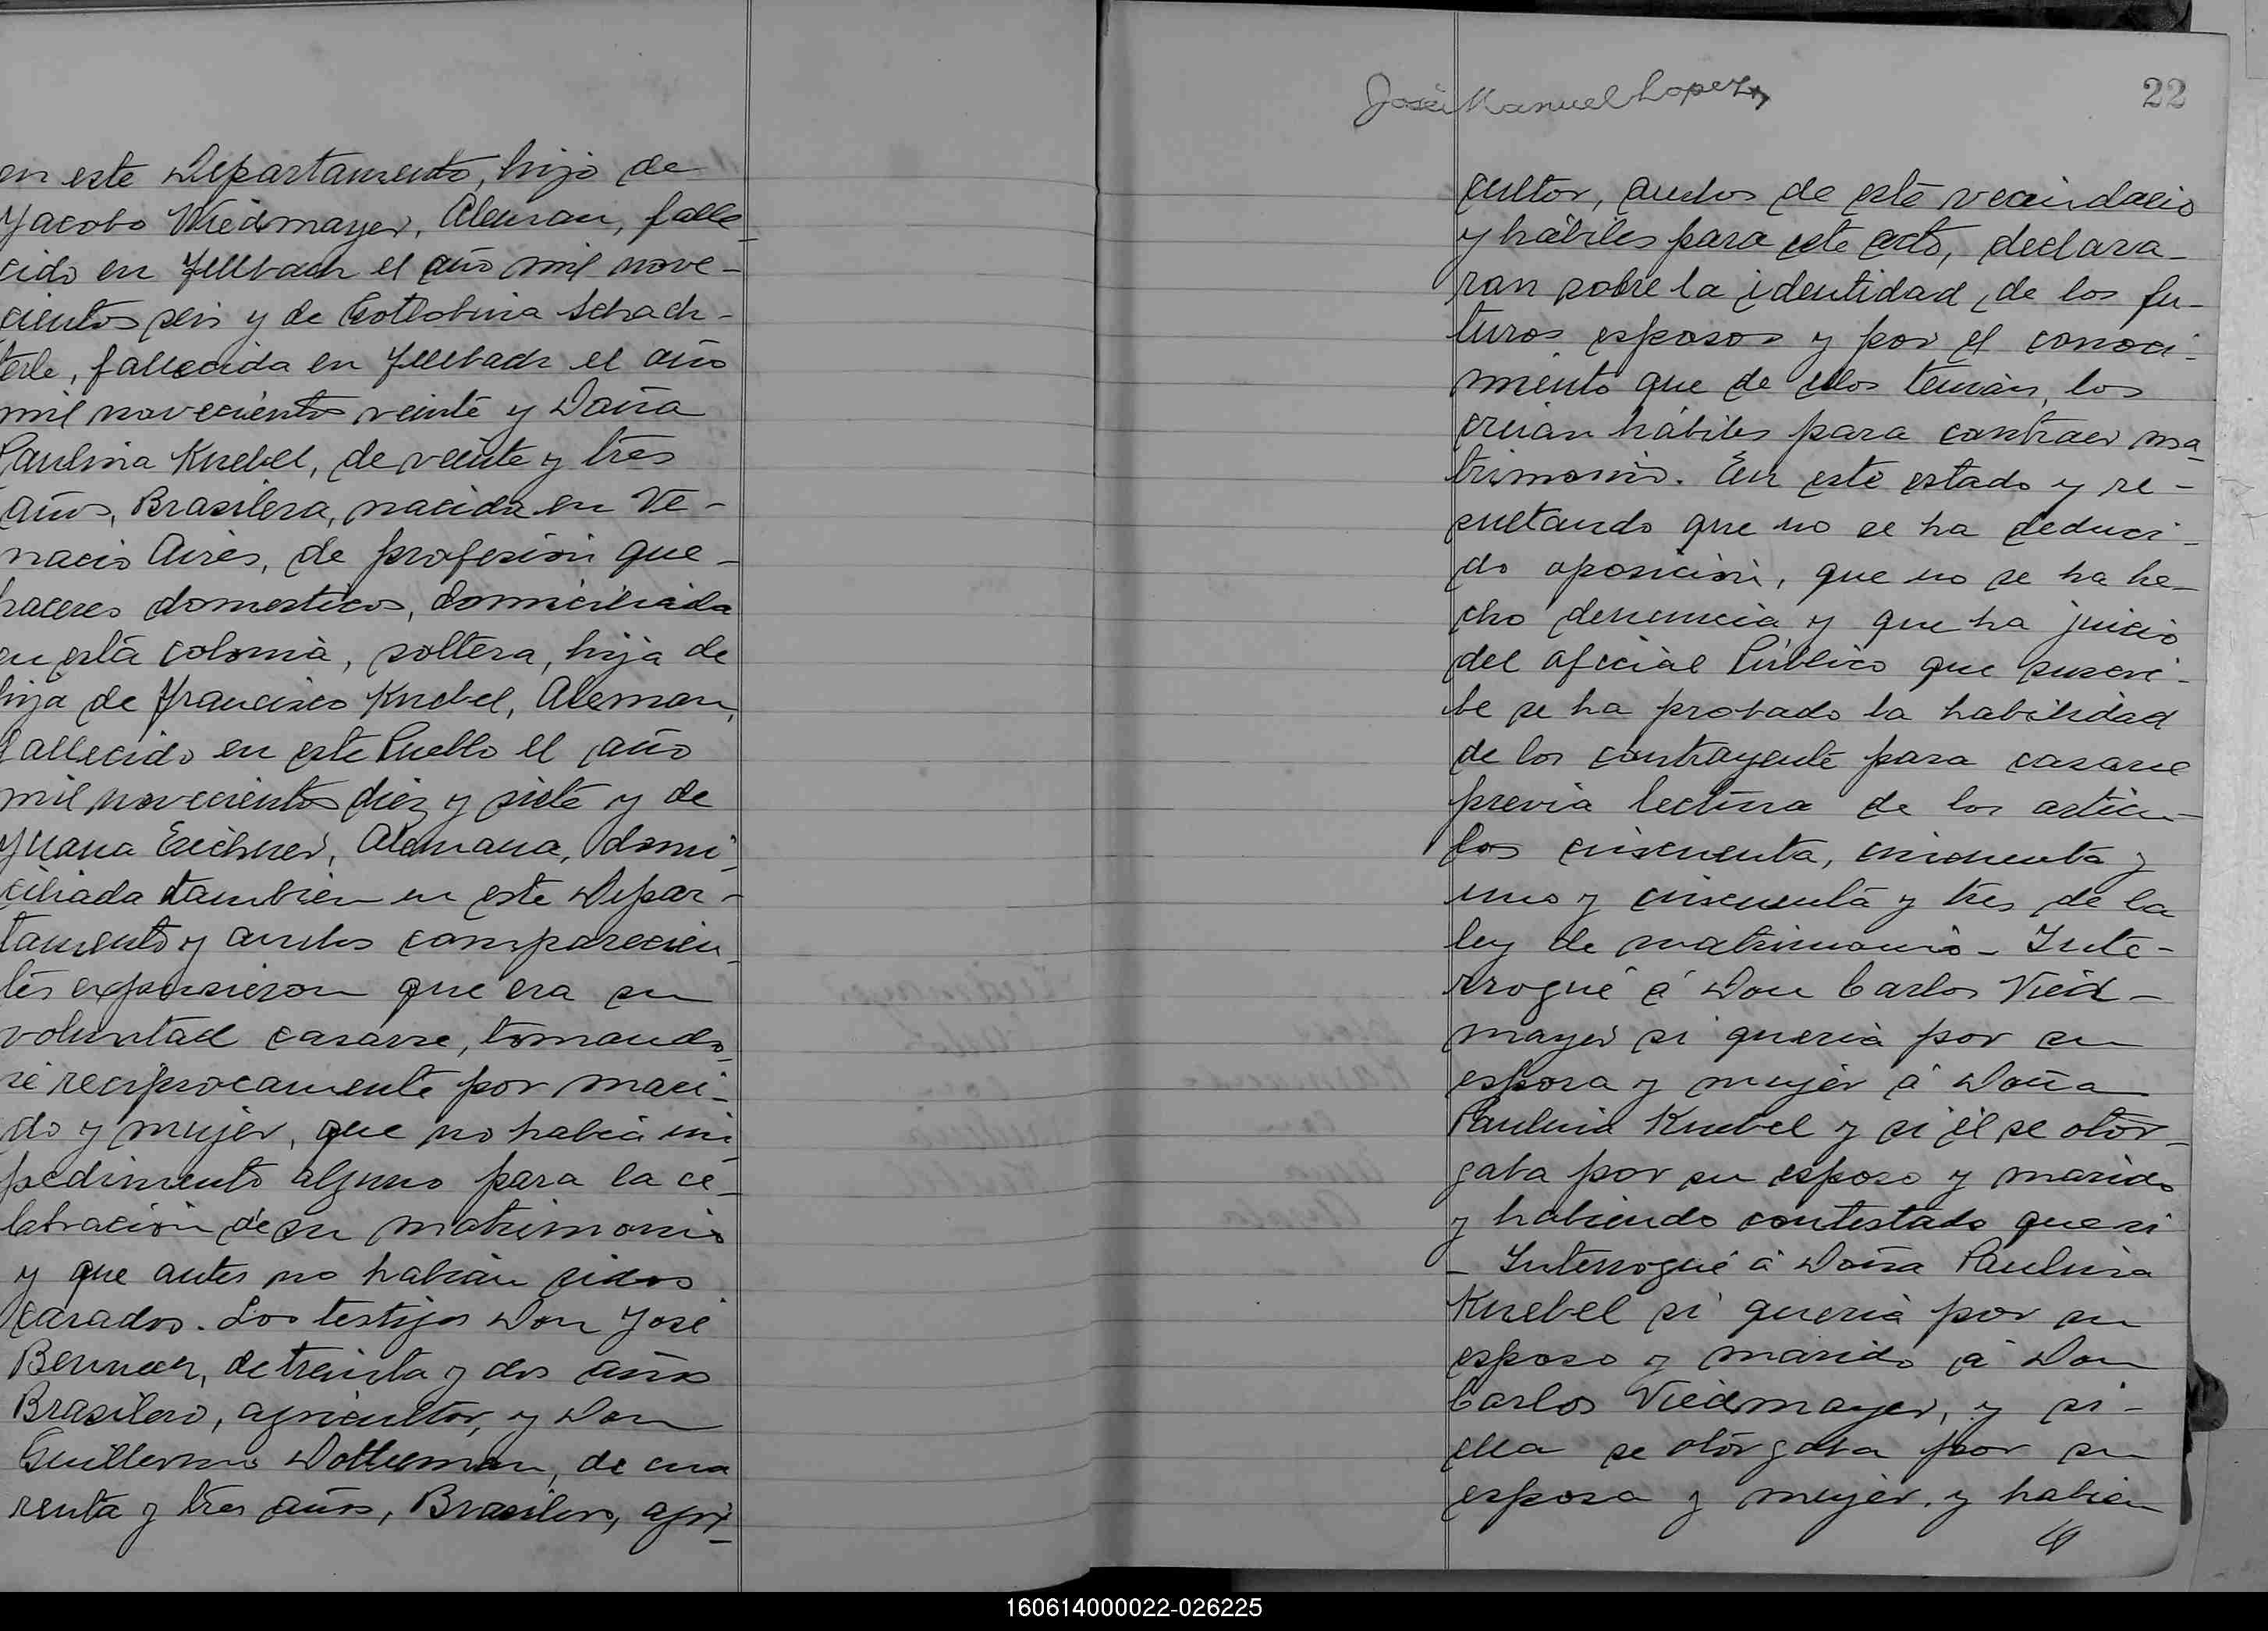 en este Departamento, hijo de
Yacobo Wiedmayer, Aleman, falle-
cido en Fellbach el año mil nove-
cientos seis y de Gotlobina Schach-
terle, fallecida en Fellbach el año
mil novecientos veinte y Doña
Paulina Knebel, de veinte y tres
años, Brasilera, nacida en Ve-
nacio Aires, de profesión que-
haceres domesticos, domiciliada
en esta colonia, soltera, hija de
hija de Francisco Knebel, Aleman,
fallecido en este Pueblo el año
mil novecientos diez y siete y de
Yuana Eichner, Alemana, domi-
ciliada tambien en este Depar-
tamento y ambos comparecien-
tes expusieron que era su
voluntad casarse, tomando-
se reciprocamente por mari-
do y mujer, que no habia im-
pedimento alguno para la ce-
lebracion de su matrimonio
y que antes no habian sidos
casados. Los testigos Don José
de treinta y dos años
Brasilero, agricultor, y Don
Guillermo de cua
renta y tres años, Brasilero, agri-
José Manuel Lopez
22
cultor, ambos de este vecindario
y hábiles para este acto, declara-
ron sobre la identidad, de los fu-
turos esposos y por el conoci-
miento que de ellos tenian, los
creian hábiles para contraer ma-
trimonio. En este estado y re-
sultando que no se ha deduci-
do oposición, que no se ha he-
cho denuncia y que ha juicio
del oficial Público que suscri-
be se ha probado la habilidad
de los contrayente para casarse
previa lectura de los articu-
los cincuenta, cincuenta y
uno y cincuenta y tres de la
ley de matrimonio - Inte-
rrogué á Don Carlos Vied-
mayer si queria por su
esposa y mujer á Doña
Paulina Knebel y si él se otor-
gaba por su esposo y marido
y habiendo contestado que si
- Interrogué á Doña Paulina
Knebel si queria por su
esposo y marido á Don
Carlos Viedmayer, y si-
ella se otorgaba por su
esposa y mujer, y habien
160614000022-026225